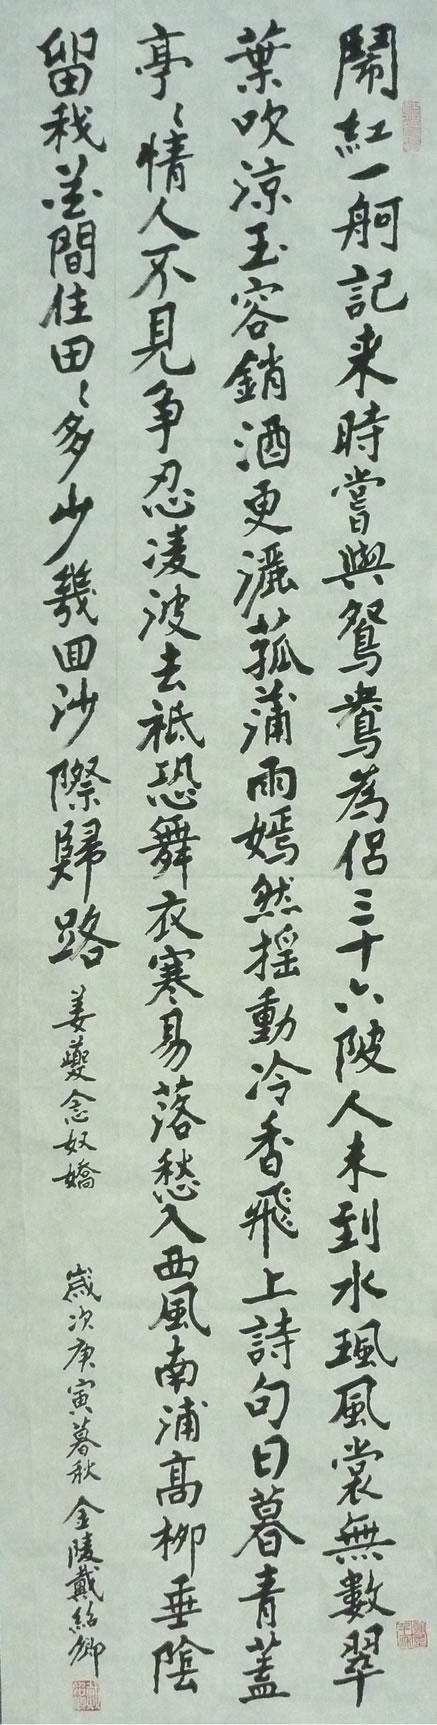 鬧紅一舸記来時嘗與鴛鴦為侶三十六陂人未到水珮風裳無數翠
葉吹涼玉容銷酒更灑菰蒲雨嫣然摇動冷香飛上詩句日暮青蓋
亭〻情人不見争忍凌波去祇恐舞衣寒易落愁入西風南浦高柳垂陰
留我花間住田〻多少幾回沙際歸路 姜夔念奴嬌 歲次庚寅暮秋 金陵戴紹卿